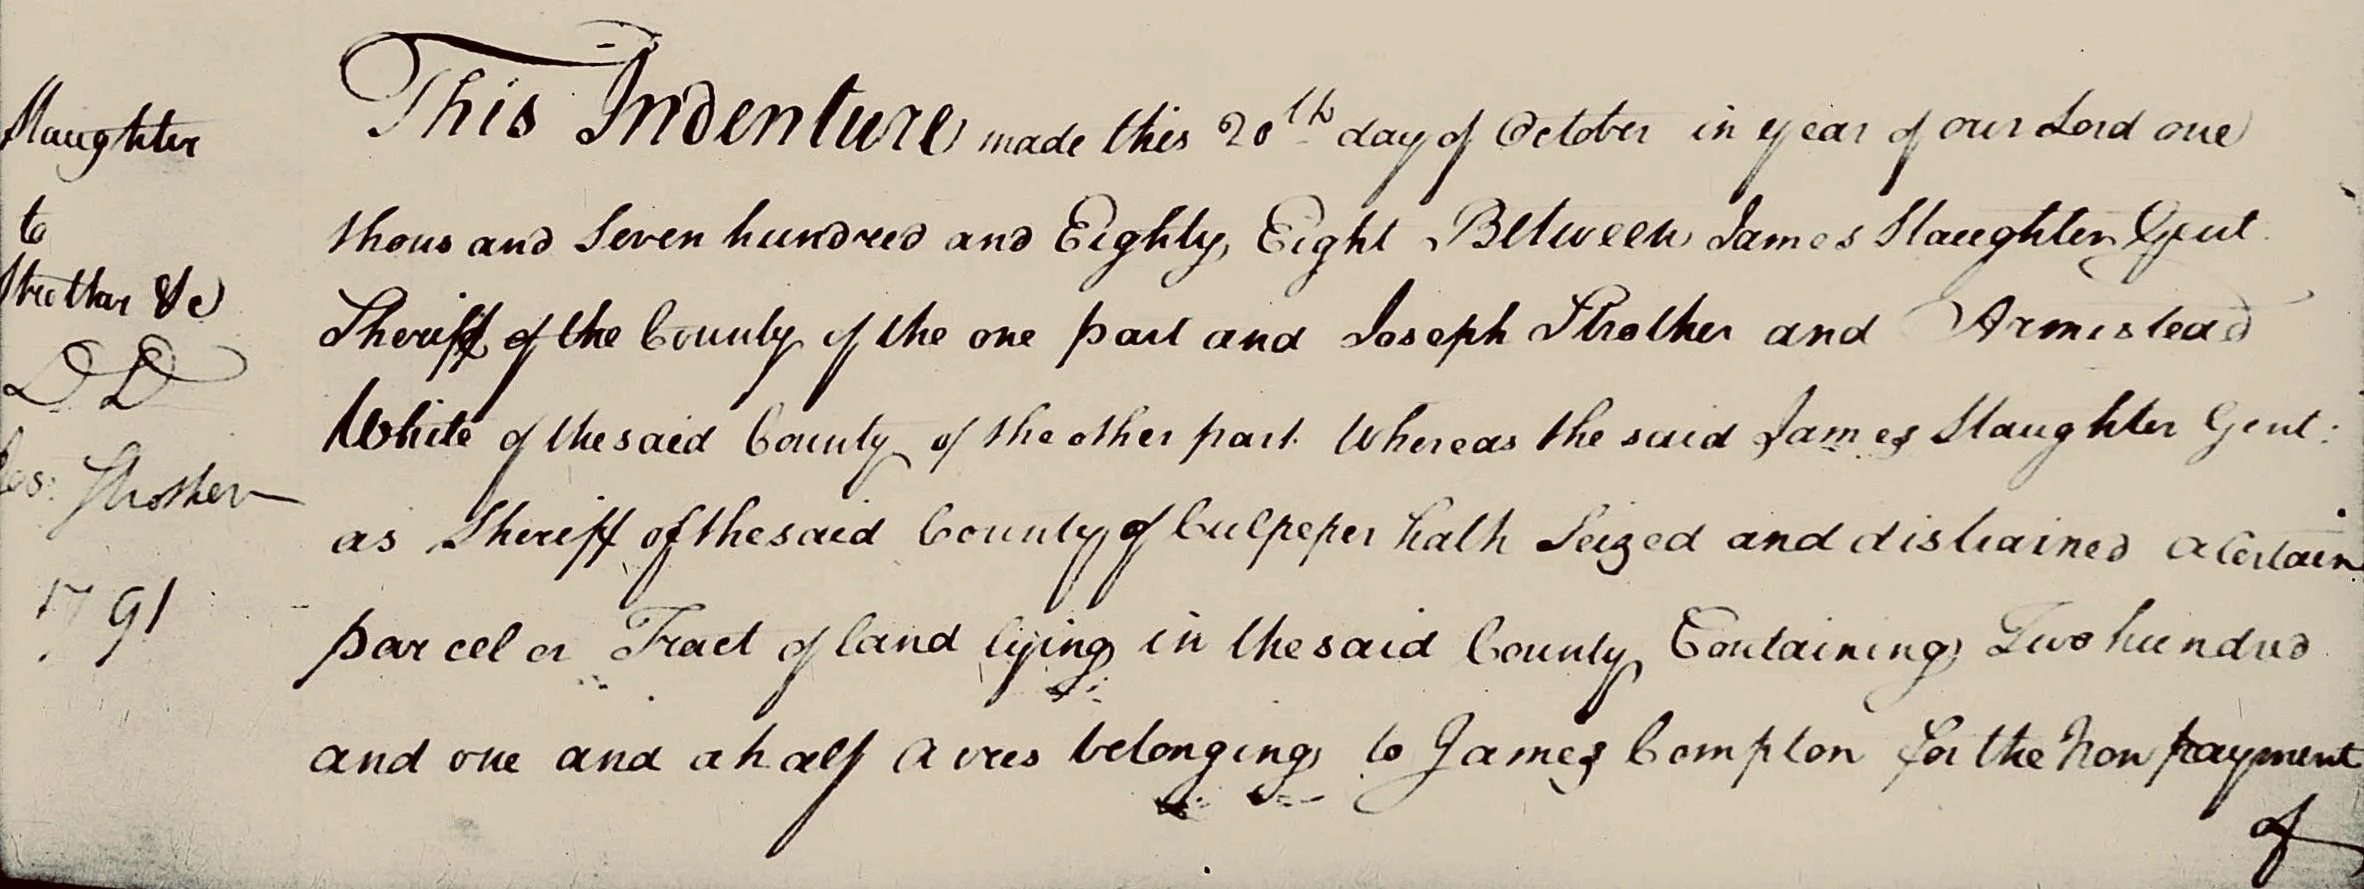 Slaughter
to
Strother &c
DD
Jos: Strother
1791
This Indenture made this 20th day of October in year of our Lord one
thousand Seven hundred and Eighty Eight Between James Slaughter Gent.
Sheriff of the County of the one part and Joseph Strother and Armistead
White of the said County of the other part Whereas the said James Slaughter Gent:
as Sheriff of the said County of Culpeper hath Seized and distrained a Certain
parcel or Tract of land lying in the said County Containing Two hundred
and one and a half Acres belonging to James Compton for the Non payment
of